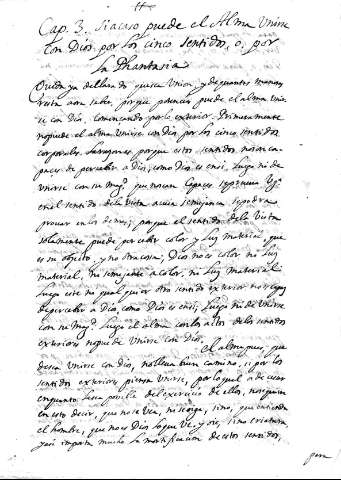 Cap. 3. Si acaso puede el Alma Vnirse
con Dios por los cinco sentidos, o por
la Phantasia
Queda ya declarado que sea Vnion, y de quantas maneras
resta aora saber, porque potencias puede el alma Vnir
se con Dios. Comencando por lo exterior. Primeramente
no puede el alma Vnirse con Dios por los cinco sentidos
corporales. La razon es porque estos sentidos no son ca-
paces de percebir a Dios, como Dios es en si. Luego ni de
Vnirse con su Mag.d que no sean capaces
en el sentido de la Vista cuia semejança se podra
prouar en los demas; porque el sentido de la Vista
solamente puede percebir color y Luz material, que
es su objecto, y no otra cosa, Dios no es color ni Luz
material, ni semejante a color, ni Luz material
Luego este ni qualquier otro sentido exterior no es capaz
de percebir a Dios como Dios es en si, Luego ni de Vnirse
con su Mag.d Luego el alma con los actos de los sentidos
exteriores no puede Vnirse con Dios.
El alma pues, que
desea Vnirse con Dios, no lleua buen camino, si por los
sentidos exteriores piensa Vnirse, por lo qual a de cessar
en quanto sea posible del exercicio de ellos, no quiero
en esto decir, que no se vea, ni se oiga, sino, que entienda
el hombre, que no es Dios lo que ve, y oie, sino criatura
y assi importa mucho la mortificacion de estos sentidos,
para